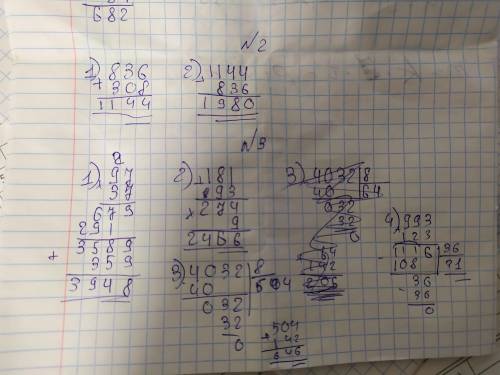 682
№2
1) 836
+ 308
1144
2) 1144
+ 836
1980
№3
1) 97
× 37
679
291
3589
+ 359
3948
2) 181
+ 93
× 274
9
2466
3) 4032 8
40 64
032
32
0
64
142
206
3) 4032 8
40 504
032
32
0
504
+ 142
646
4) 993
123
- 1116 36
108 31
- 36
36
0